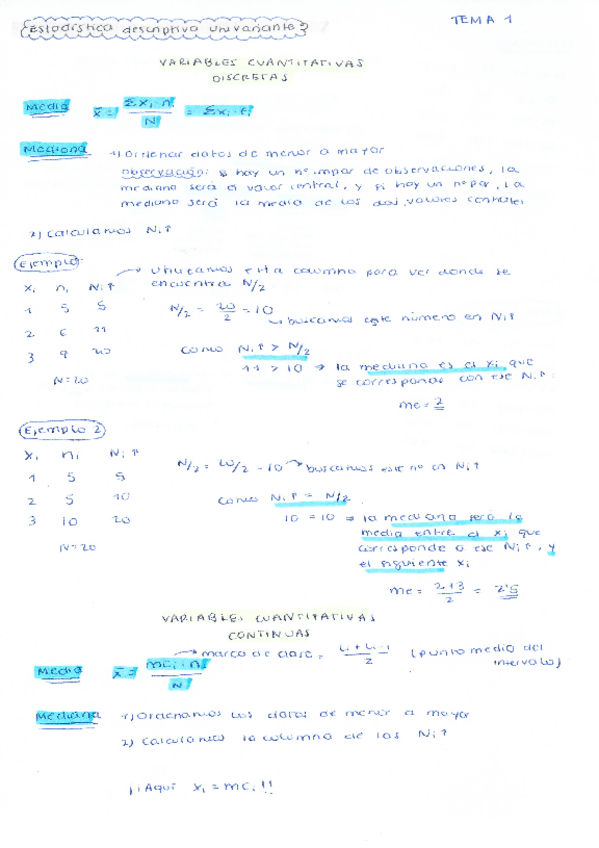 TEMA 1
Estadística descriptiva univariante
VARIABLES CUANTITATIVAS
DISCRETAS
Media x̄ = Σxi·ni / N = Σxi·fi
Mediana 1) Ordenar datos de menor a mayor
observación: si hay un nº impar de observaciones, la
mediana será el valor central, y si hay un nº par, la
mediana será la media de los dos valores centrales
2) Calculamos Ni↑
Ejemplo:
xi ni Ni↑ → utilizamos esta columna para ver donde se
encuentra N/2
1 5 5 N/2 = 20/2 = 10
↳ buscamos este número en Ni↑
2 6 11
3 9 20 como Ni↑ > N/2
11 > 10 → la mediana es el xi que
se corresponde con ese Ni↑.
N=20
me = 2
Ejemplo 2
xi ni Ni↑ N/2 = 20/2 = 10 → buscamos este nº en Ni↑
1 5 5
2 5 10 como Ni↑ = N/2
3 10 20 10 = 10 → la mediana será la
media entre el xi que
corresponde a ese Ni↑, y
el siguiente xi
N=20
me = 2+3 / 2 = 2'5
VARIABLES CUANTITATIVAS
CONTINUAS
→ marca de clase = Li + Li-1 / 2 (punto medio del
intervalo)
Media x̄ = mci · ni / N
Mediana 1) Ordenamos los datos de menor a mayor
2) Calculamos la columna de las Ni↑
¡¡Aquí xi = mci!!